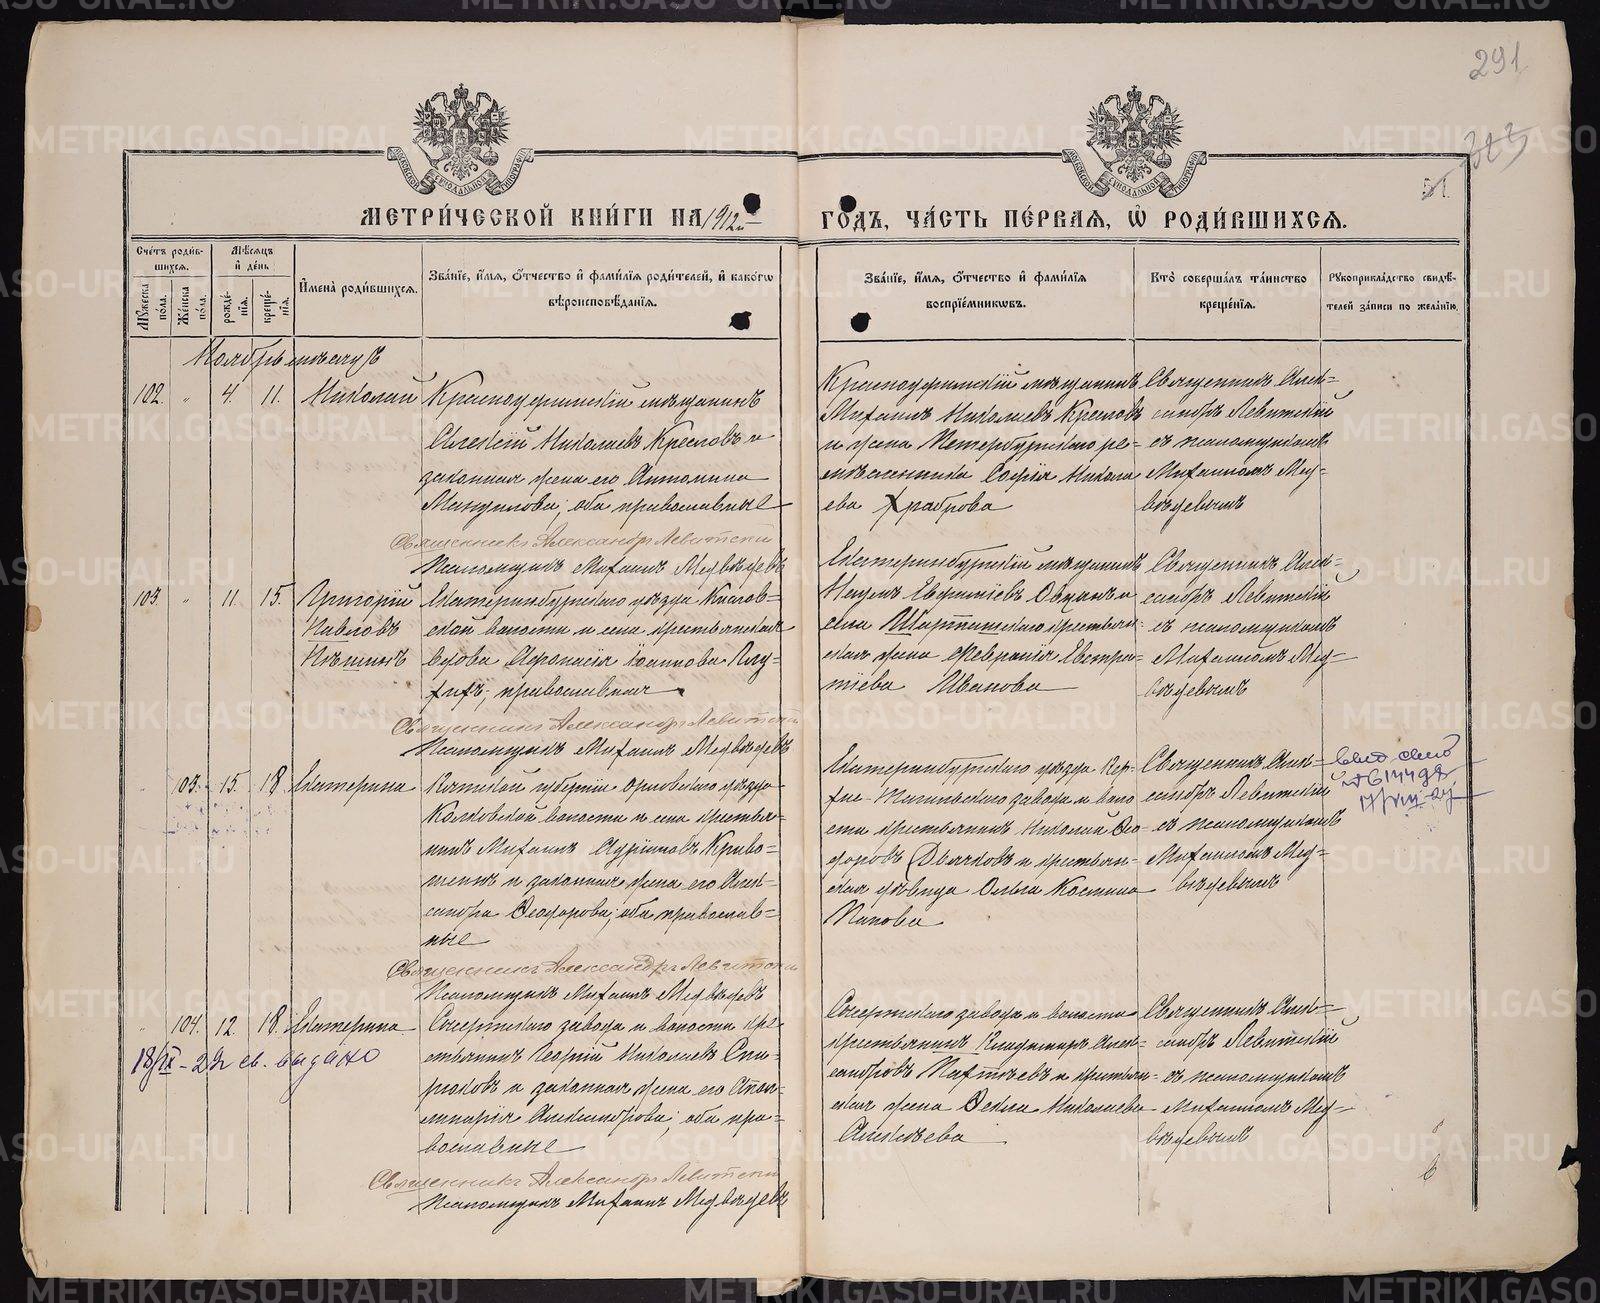 291
323
51
МЕТРИ́ЧЕСКОЙ КНИ́ГИ НА 1912 й
ГО́ДЪ, ЧА́СТЬ ПЕ́РВАЯ, Ѡ РОДИ́ВШИХСЯ.
Сче́тъ роди́в-
шихся.
Му́жеска по́ла.
Же́нска по́ла.
Мѣ́сяцъ
и́ де́нь
рожде́-
нїя.
креще́-
нїя.
И́мена̀ роди́вшихся.
Зва́нїе, и́мя, о́тчество и́ фами́лїя роди́телей, и́ како́гѡ
вѣроисповѣ́данїя.
Зва́нїе, и́мя, о́тчество и́ фами́лїя
воспрїе́мниковъ.
Кто̀ соверша́лъ та́инство
креще́нїя.
Рукоприкла́дство свидѣ́-
телей за́писи по жела́нїю.
Ноябрь мѣсяцъ
102. " 4. 11. Николай
Красноуфимскій мѣщанинъ
Алексій Николаевъ Кресловъ и
законная жена его Антонина
оба православные
Священникъ Александръ Левитскій
Псаломщикъ Михаилъ Медвѣдевъ
Красноуфимскій мѣщанинъ
Михаилъ Николаевъ Кресловъ
и жена Петербургскаго ре-
мѣсленника Софія Никола
ева Храброва
Священникъ Алек-
сандръ Левитскій
съ псаломщикомъ
Михаиломъ Мед-
вѣдевымъ
103. " 11. 15. Григорій
Павловъ
Екатеринбургскаго уѣзда Кислов-
ской волости и села крестьянская
вдова Афанасія Іоаннова
православная
Священникъ Александръ Левитскій
Псаломщикъ Михаилъ Медвѣдевъ
Екатеринбургскій мѣщанинъ
села Шарташскаго крестьян-
ская жена Февронія Евстра-
тіева Иванова
Священникъ Алек-
сандръ Левитскій
съ псаломщикомъ
Михаиломъ Мед-
вѣдевымъ
" 103. 15. 18. Екатерина
Вятской губерніи Орловскаго уѣзда
волости и села крестья-
нинъ Михаилъ Криво-
и законная жена его Алек-
сандра Ѳеодорова; оба православ-
ные
Священникъ Александръ Левитскій
Псаломщикъ Михаилъ Медвѣдевъ
Екатеринбургскаго уѣзда Вер-
хне-Тагильскаго завода и воло
сти крестьянинъ Николай Ѳео
доровъ Дьячковъ и крестьян-
ская дѣвица Ольга
Попова
Священникъ Алек-
сандръ Левитскій
съ псаломщикомъ
Михаиломъ Мед-
вѣдевымъ
" 104. 12. 18. Екатерина
18/IX-2 св. выдано
Сысертскаго завода и волости кре
стьянинъ Георгій Николаевъ Спи-
ридоновъ и законная жена его
Александрова; оба пра-
вославные
Священникъ Александръ Левитскій
Псаломщикъ Михаилъ Медвѣдевъ
Сысертскаго завода и волости
крестьянинъ Владимиръ Алек-
сандровъ и крестьян-
ская жена Ѳекла Николаева
Алексѣева
Священникъ Алек-
сандръ Левитскій
съ псаломщикомъ
Михаиломъ Мед-
вѣдевымъ
METRIKI.GASO-URAL.RU